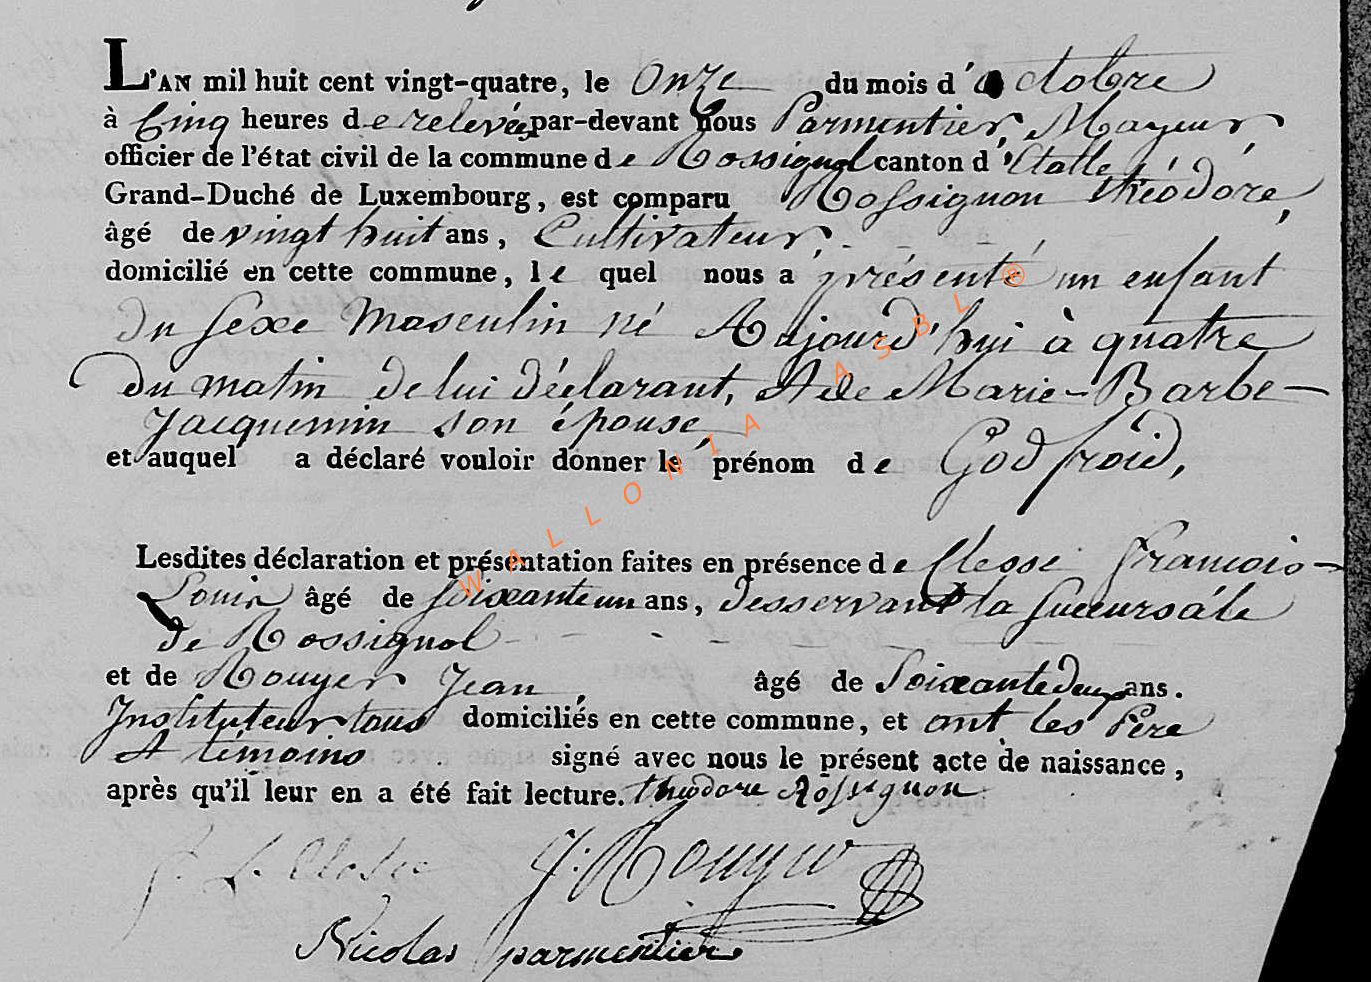 L'AN mil huit cent vingt-quatre, le Onze du mois d'Octobre
à Cinq heures de relevée, par-devant nous Parmentier, Mayeur,
officier de l'état civil de la commune de Rossignol canton d'Etalle,
Grand-Duché de Luxembourg, est comparu Rossignon théodore,
âgé de vingt huit ans, Cultivateur,
domicilié en cette commune, le quel nous a présenté un enfant
du sexe Masculin né Aujourd'hui à quatre
du matin de lui déclarant, et de Marie-Barbe-
Jacquemin son épouse,
et auquel a déclaré vouloir donner le prénom de Godfroid,
Lesdites déclaration et présentation faites en présence de Clesse François-
Louis âgé de soixante un ans, desservant la succursale
de Rossignol
et de Rouyer Jean, âgé de Soixante deux ans.
Instituteur tous domiciliés en cette commune, et ont les Père
et témoins signé avec nous le présent acte de naissance,
après qu'il leur en a été fait lecture. theodore Rossignon
f. L. Clesse J. Rouyer
Nicolas parmentier
WALLONIA ASBL ®